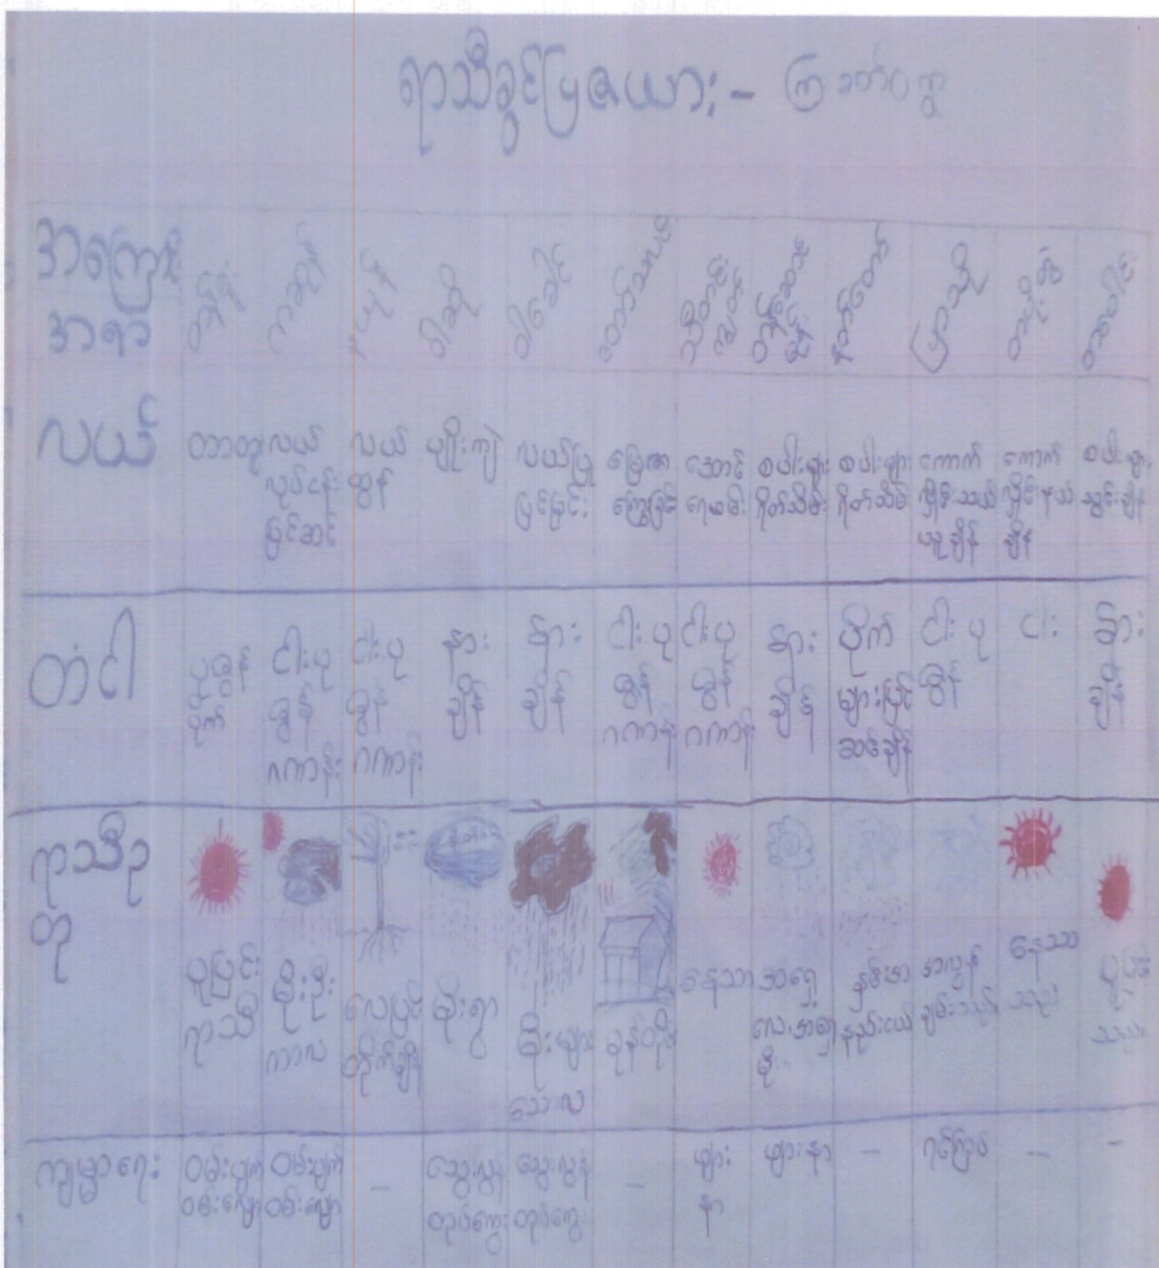 ရာသီခွင်ပြဇယား:-
အကြောင်း
အရာ
တန်ခူး
ကဆုန်
နယုန်
ဝါဆို
ဝါခေါင်
တော်သလင်း
သီတင်း
ကျွတ်
တန်ဆောင်
မုန်း
နတ်တော်
ပြာသို
တပို့တွဲ
တပေါင်း
လယ်
တာတူး
လယ်
လုပ်ငန်း
ပြင်ဆင်
လယ်
ထွန်
မျိုးကျဲ
လယ်ပြု
ပြင်ခြင်း
မြေဩဇာ
ကြွေးခြင်း
အောင့်
ရေဖမ်း
စပါးများ
ရိတ်သိမ်း
စပါးများ
ရိတ်သိမ်း
ကောက်
လှိုင်းသယ်
ယူချိန်
ကောက်
လှိုင်းနယ်
ချိန်
စပါးများ
သွင်းချိန်
တံငါ
ပုစွန်
ပိုက်
ငါး၊ပု
စွန်
ဂဏန်း
ငါး၊ပု
စွန်
ဂဏန်း
နား
ချိန်
နား
ချိန်
ငါး၊ပု
စွန်
ဂဏန်း
ငါး၊ပု
စွန်
ဂဏန်း
နား
ချိန်
ပိုက်
များပြင်
ဆင်ချိန်
ငါး၊ပု
စွန်
ငါး
နား
ချိန်
ရာသီဥ
တု
ပူပြင်း
ရာသီ
မိုးဦး
ကာလ
လေပြင်း
တိုက်ချိန်
မိုးရွာ
မိုးများ
သောလ
မုန်တိုင်း
နေသာ
အရှေ့
လေ၊အရှေ့
မိုး
နှင်းအ
နည်းငယ်
အလွန်
ချမ်းသည်
နေသာ
သည်
ပူပြင်း
သည်
ကျမ္မာရေး
ဝမ်းပျက်
ဝမ်းလျှော
ဝမ်းပျက်
ဝမ်းလျှော
-
သွေးလွန်
တုပ်ကွေး
သွေးလွန်
တုပ်ကွေး
-
ဖျား
နာ
ဖျားနာ
-
ရင်ကြပ်
-
-